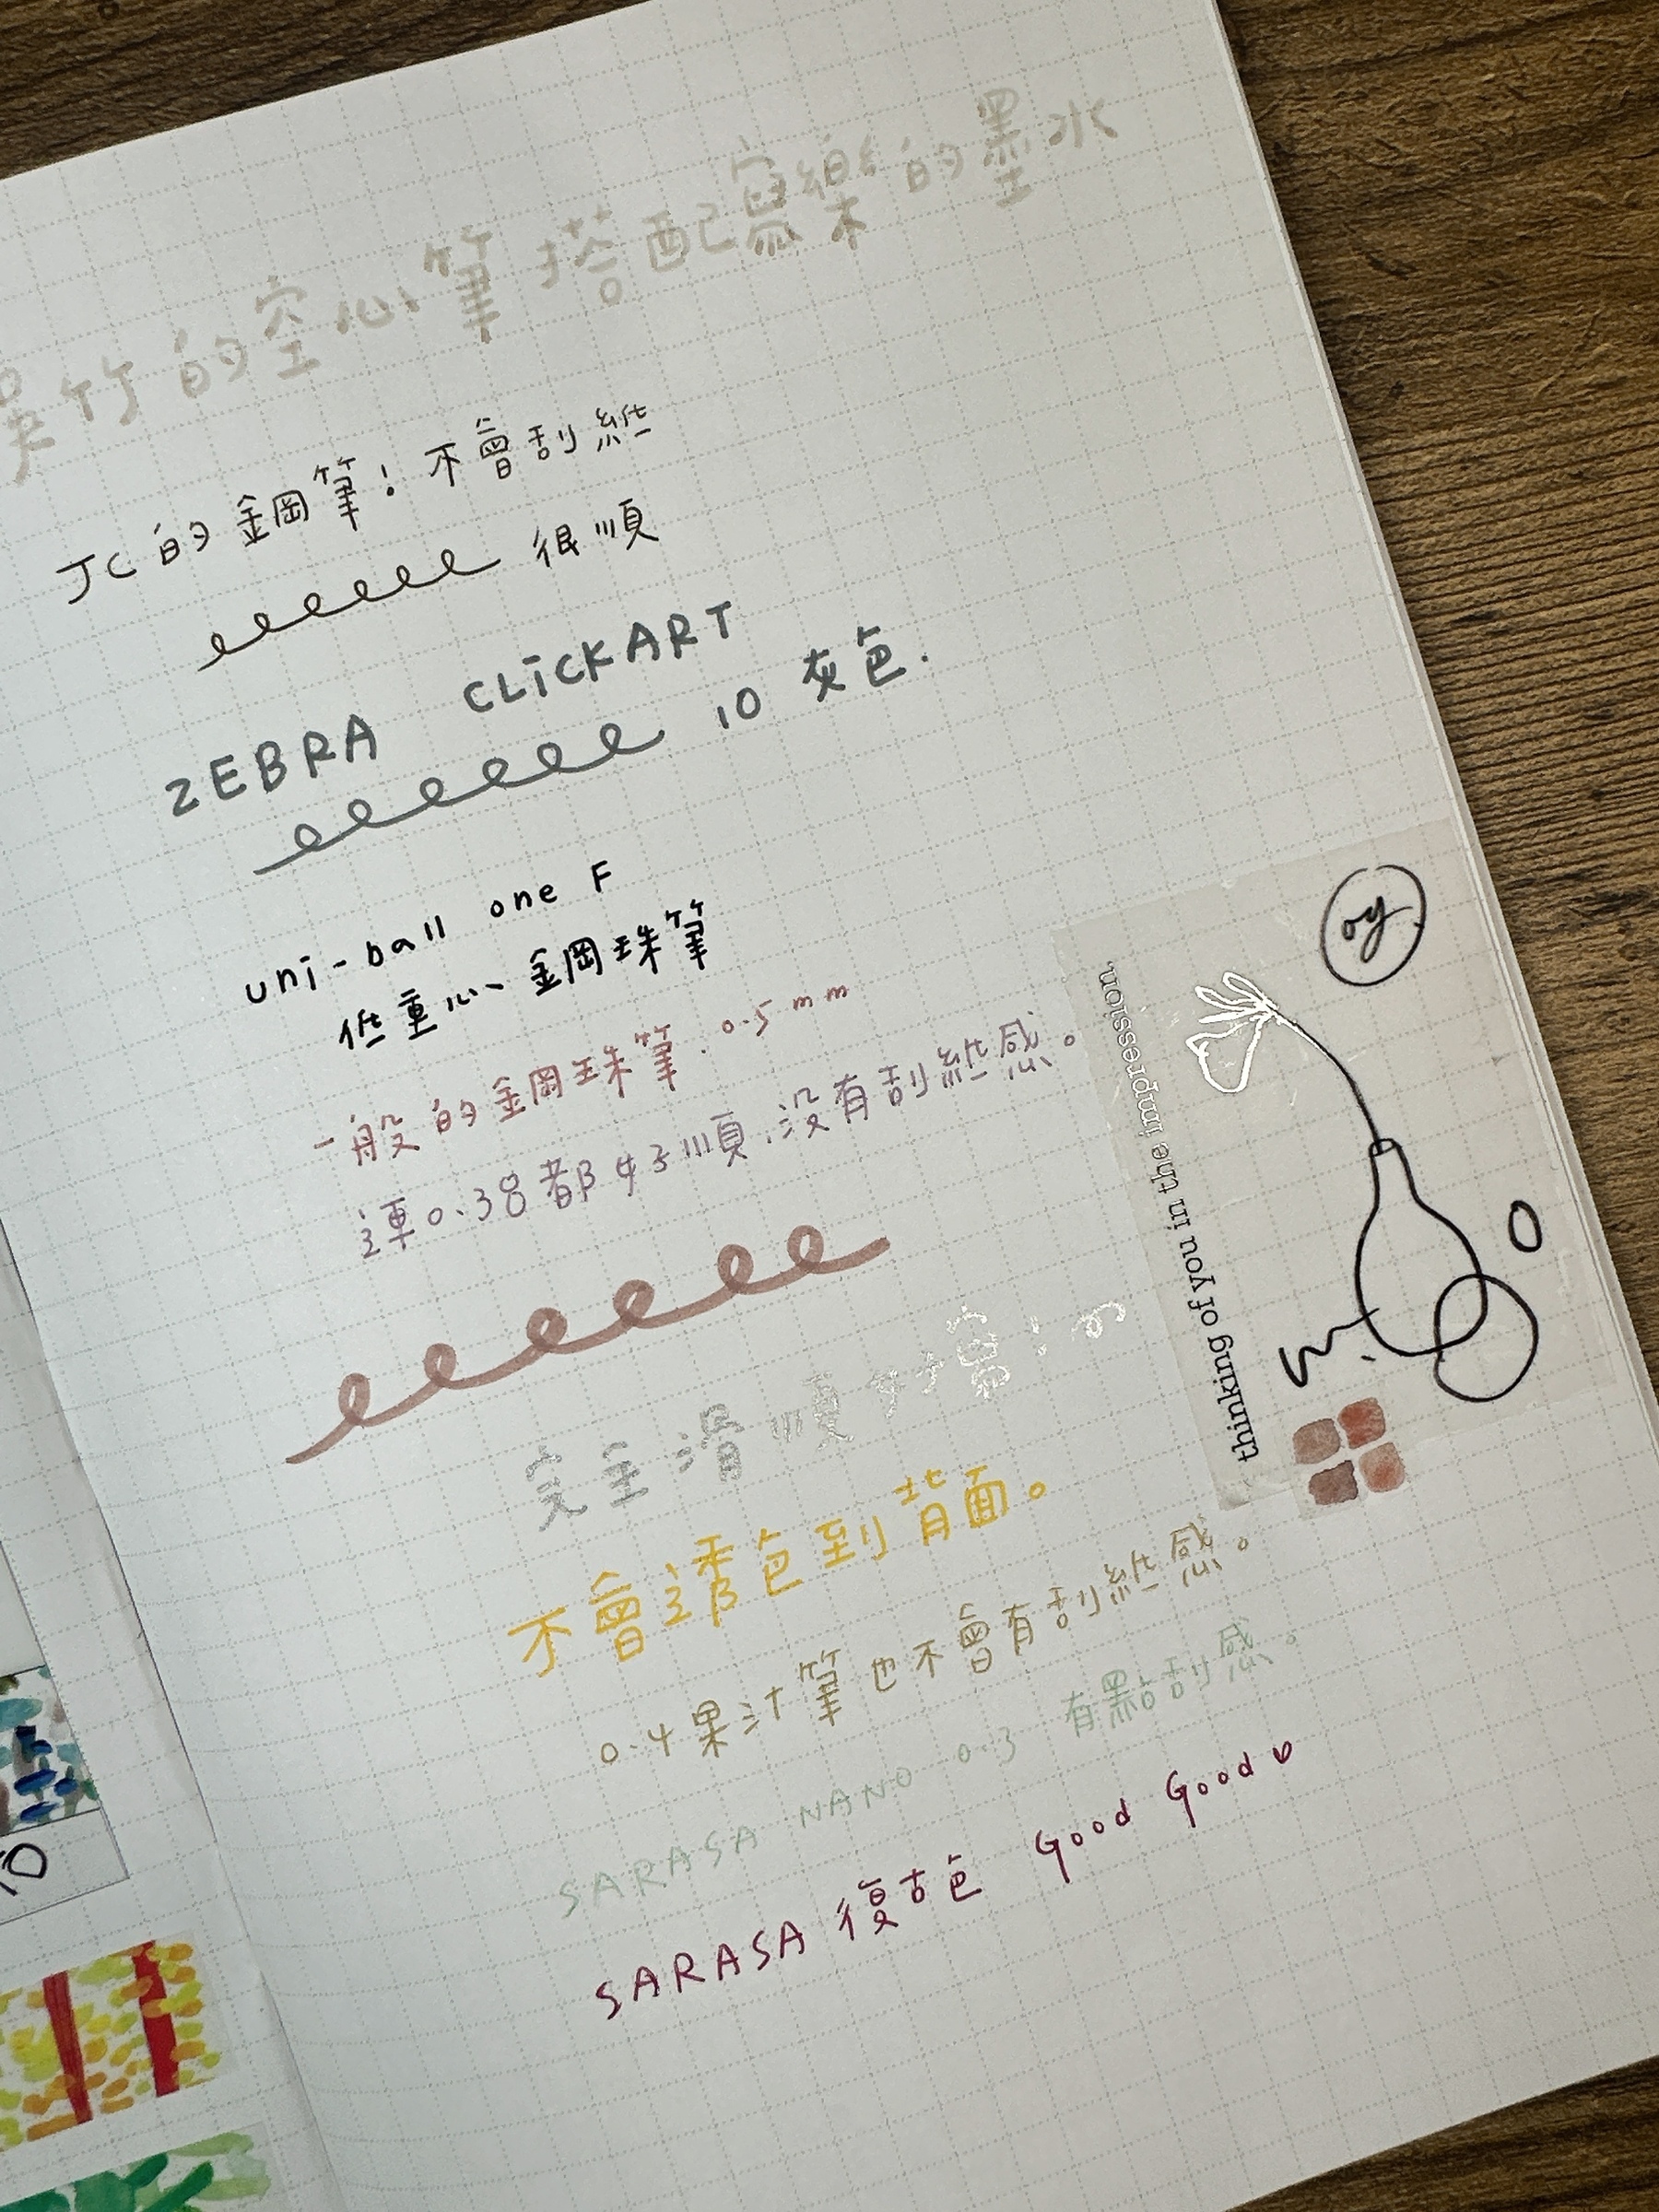 吳竹的空心筆搭配寫樂的墨水
JC的鋼筆!不會刮紙
很順
ZEBRA CLiCKART
10 灰色.
uni-ball one F
低重心鋼珠筆
一般的鋼珠筆.0.5mm
連0.38都好順.沒有刮紙感。
完全滑順好寫!
不會透色到背面。
0.4果汁筆也不會有刮紙感。
SARASA NANO 0.3 有點刮感。
SARASA 復古色 Good Good♡
oy
thinking of you in the impression.
10